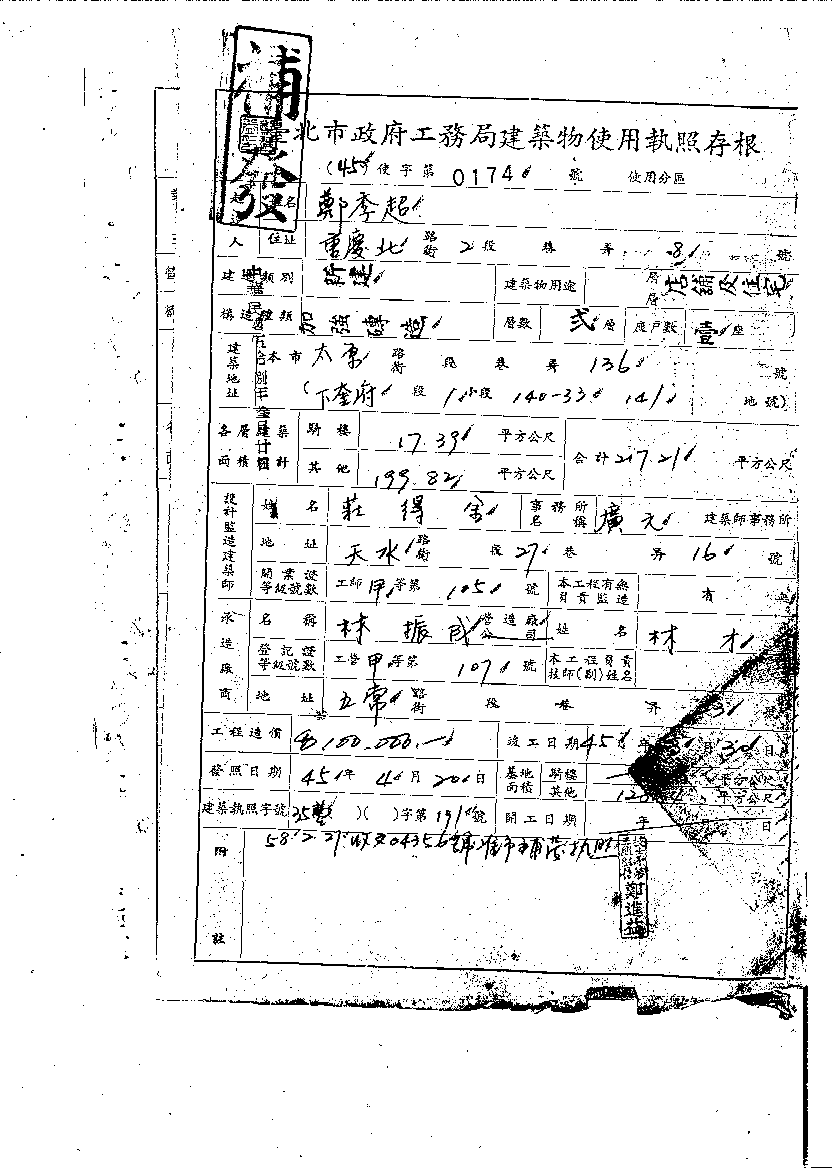 補發
臺北市政府工務局建築物使用執照存根
(45)使字第 0174 號 使用分區
姓名 鄭李超
人 住址 重慶北 路街 2 段 巷 弄 8 號
建造類別 新建 建築物用途 層層 店鋪及住宅
構造種類 加強磚造 層數 弍層 座戶數 壹座
建築地址 本市 太原 路街 段 巷 弄 136 號
(下奎府 段 1 小段 140-33 141 地號)
各層建築面積總計 騎樓 17.39 平方公尺 合計 217.21 平方公尺
其他 199.82 平方公尺
設計監造建築師 姓名 莊得 事務所名稱 廣元 建築師事務所
地址 天水 路街 段 27 巷 弄 16 號
開業證等級號數 工師 甲 等第 105 號 本工程有無負責監造 有
承造廠商 名稱 林振成 營造廠公司 姓名 林才
登記證等級號數 工營 甲 等第 107 號 本工程負責技師(副)姓名
地址 五常 路街 段 巷 弄 3 號
工程造價 100,000.— 竣工日期 45 年 3 月 30 日
發照日期 45 年 4 月 20 日 基地面積 騎樓 平方公尺
其他 平方公尺
建築執照字號 ( )字第 191 號 開工日期 年 日
附註 58.2.21 收文04356號准補發執照
鄭進益